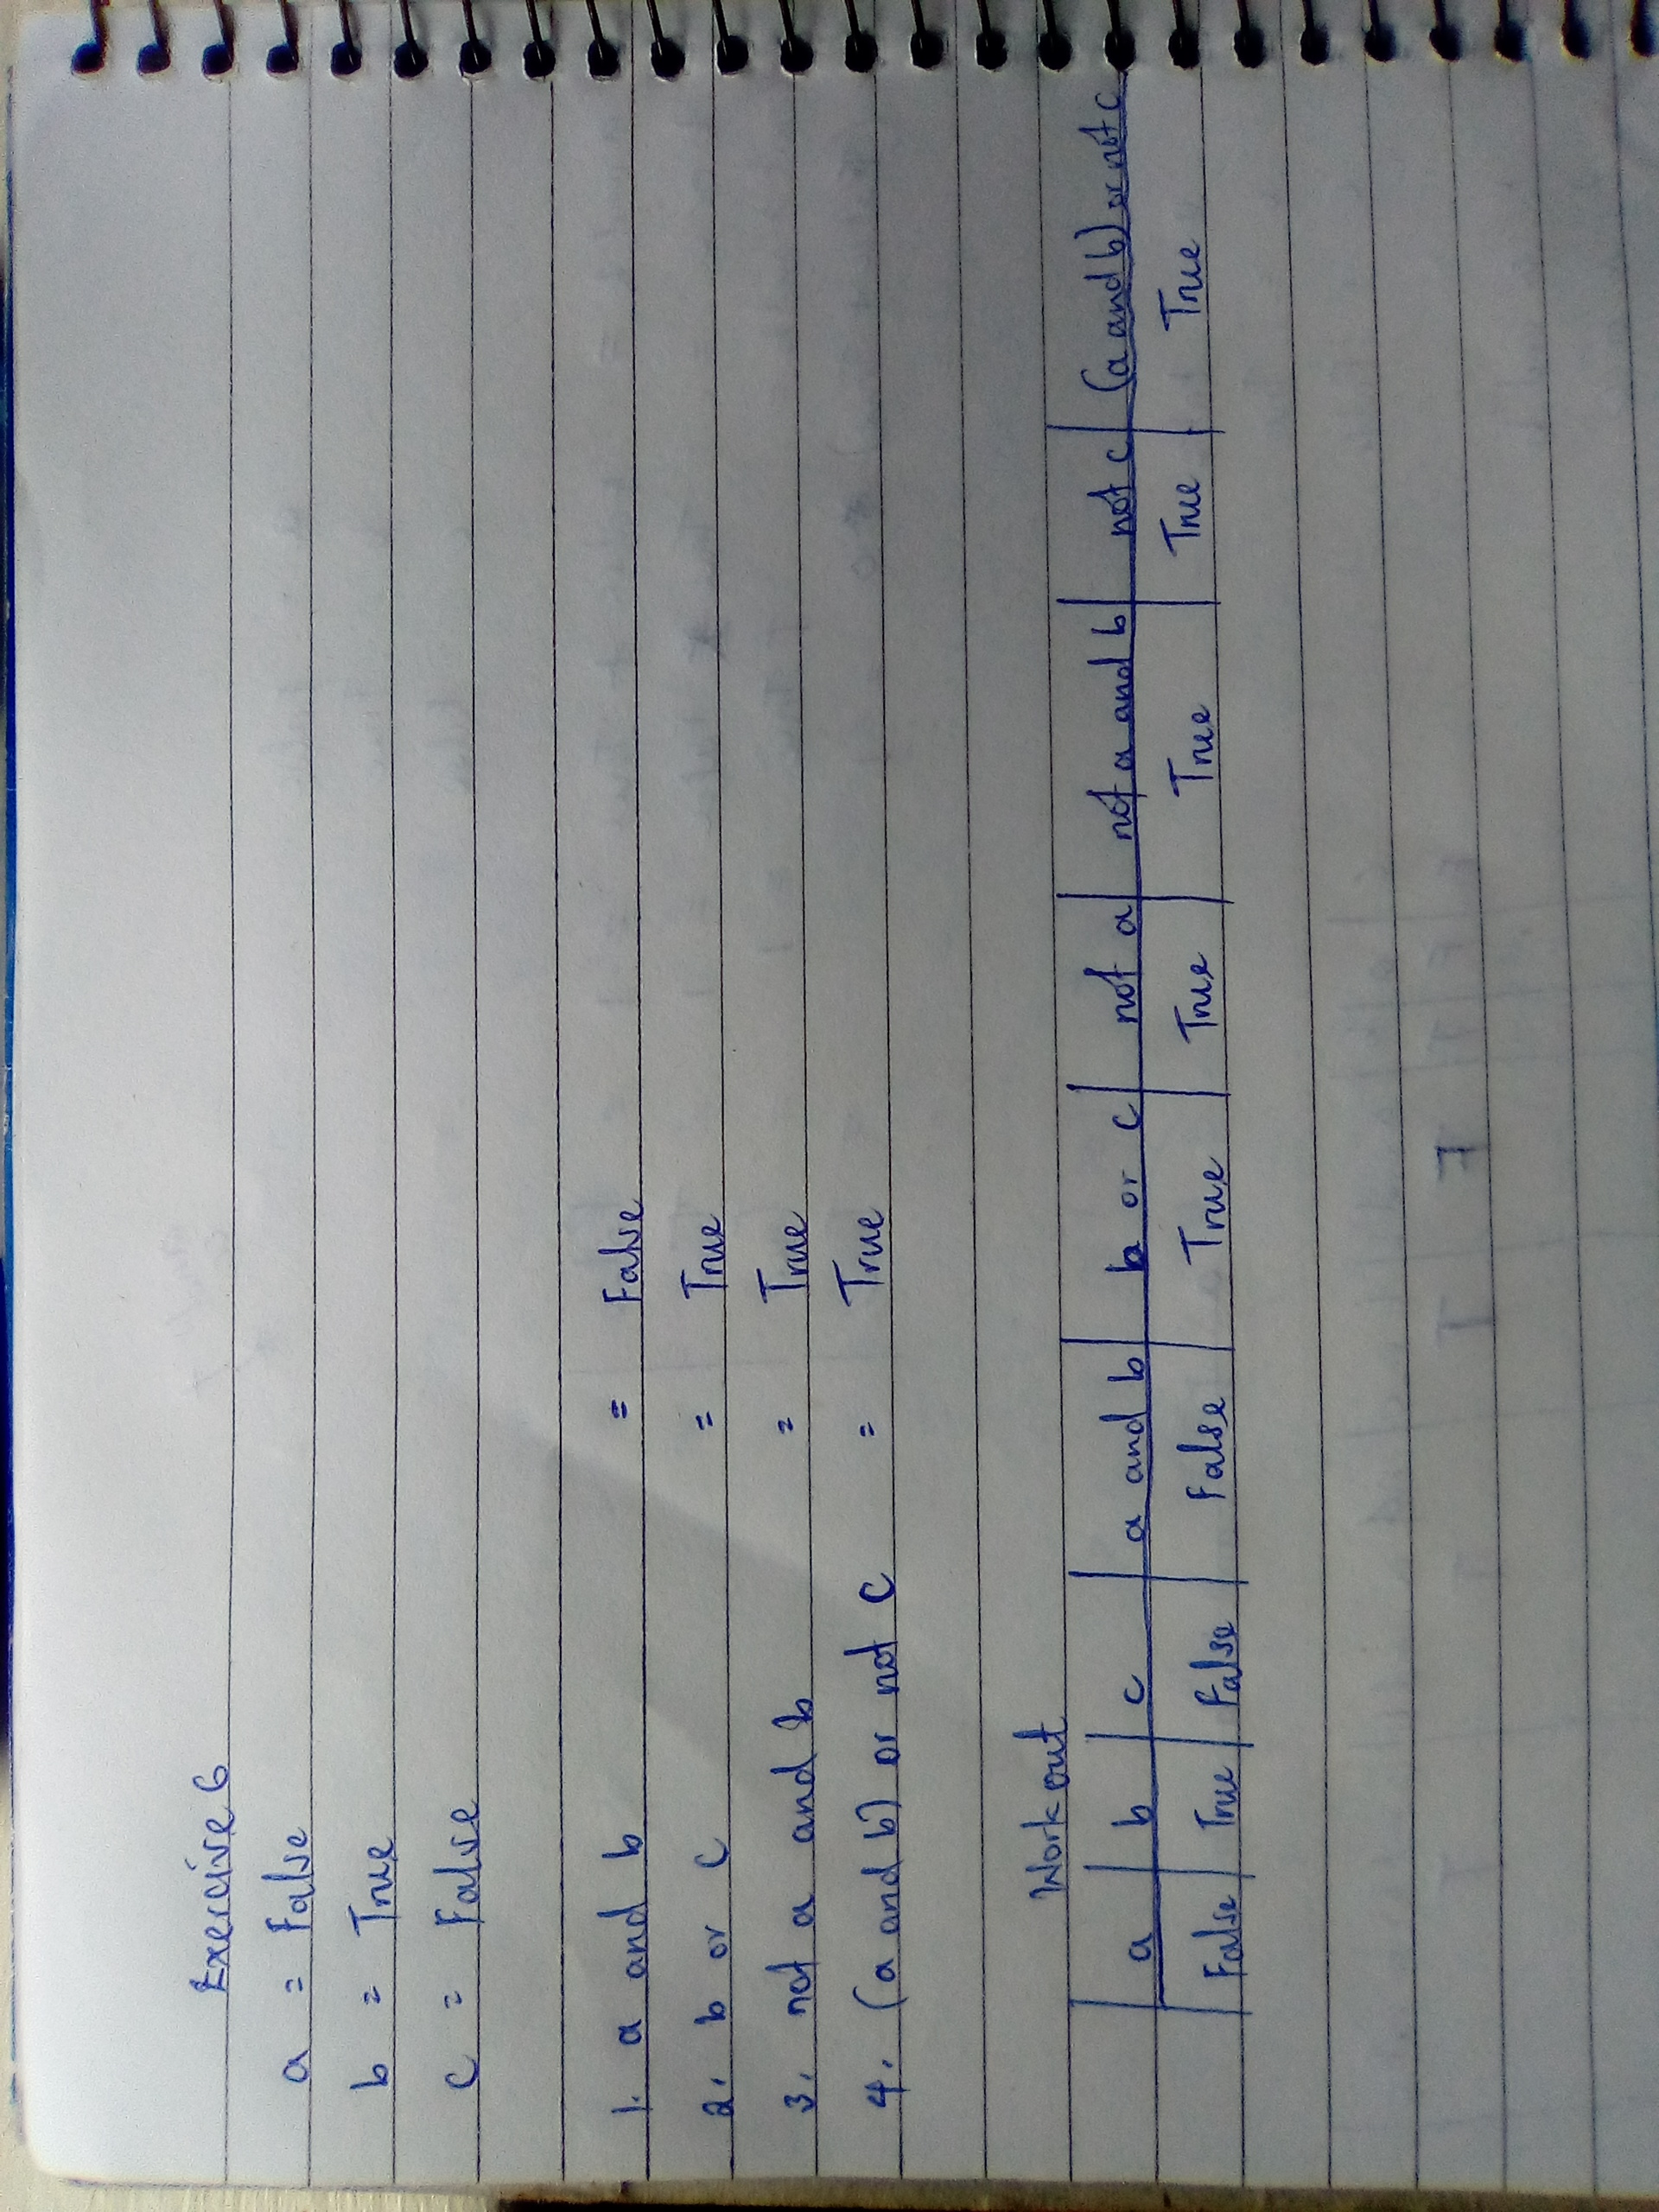 Exercise 6
a = False
b = True
c = False
1. a and b = False
2. b or c = True
3. not a and b = True
4. (a and b) or not c = True
Work out
a b c a and b b or c not a not a and b not c (a and b) or not c
False True False False True True True True True